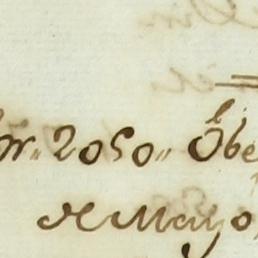 or „ 2050 „ Obe
de Mayo